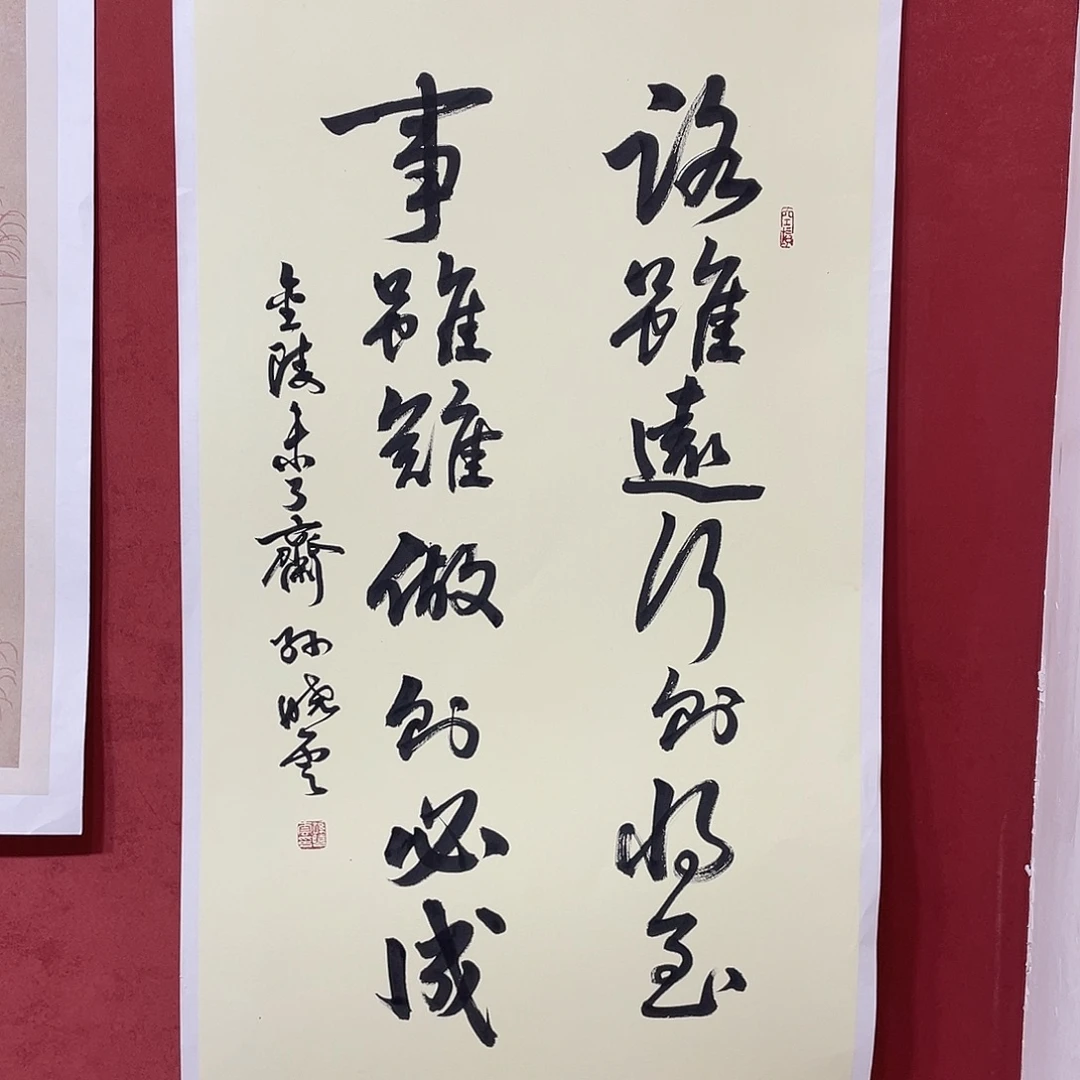 路雖遠行則將至
事雖難做則必成
金陵未了齋孫曉雲